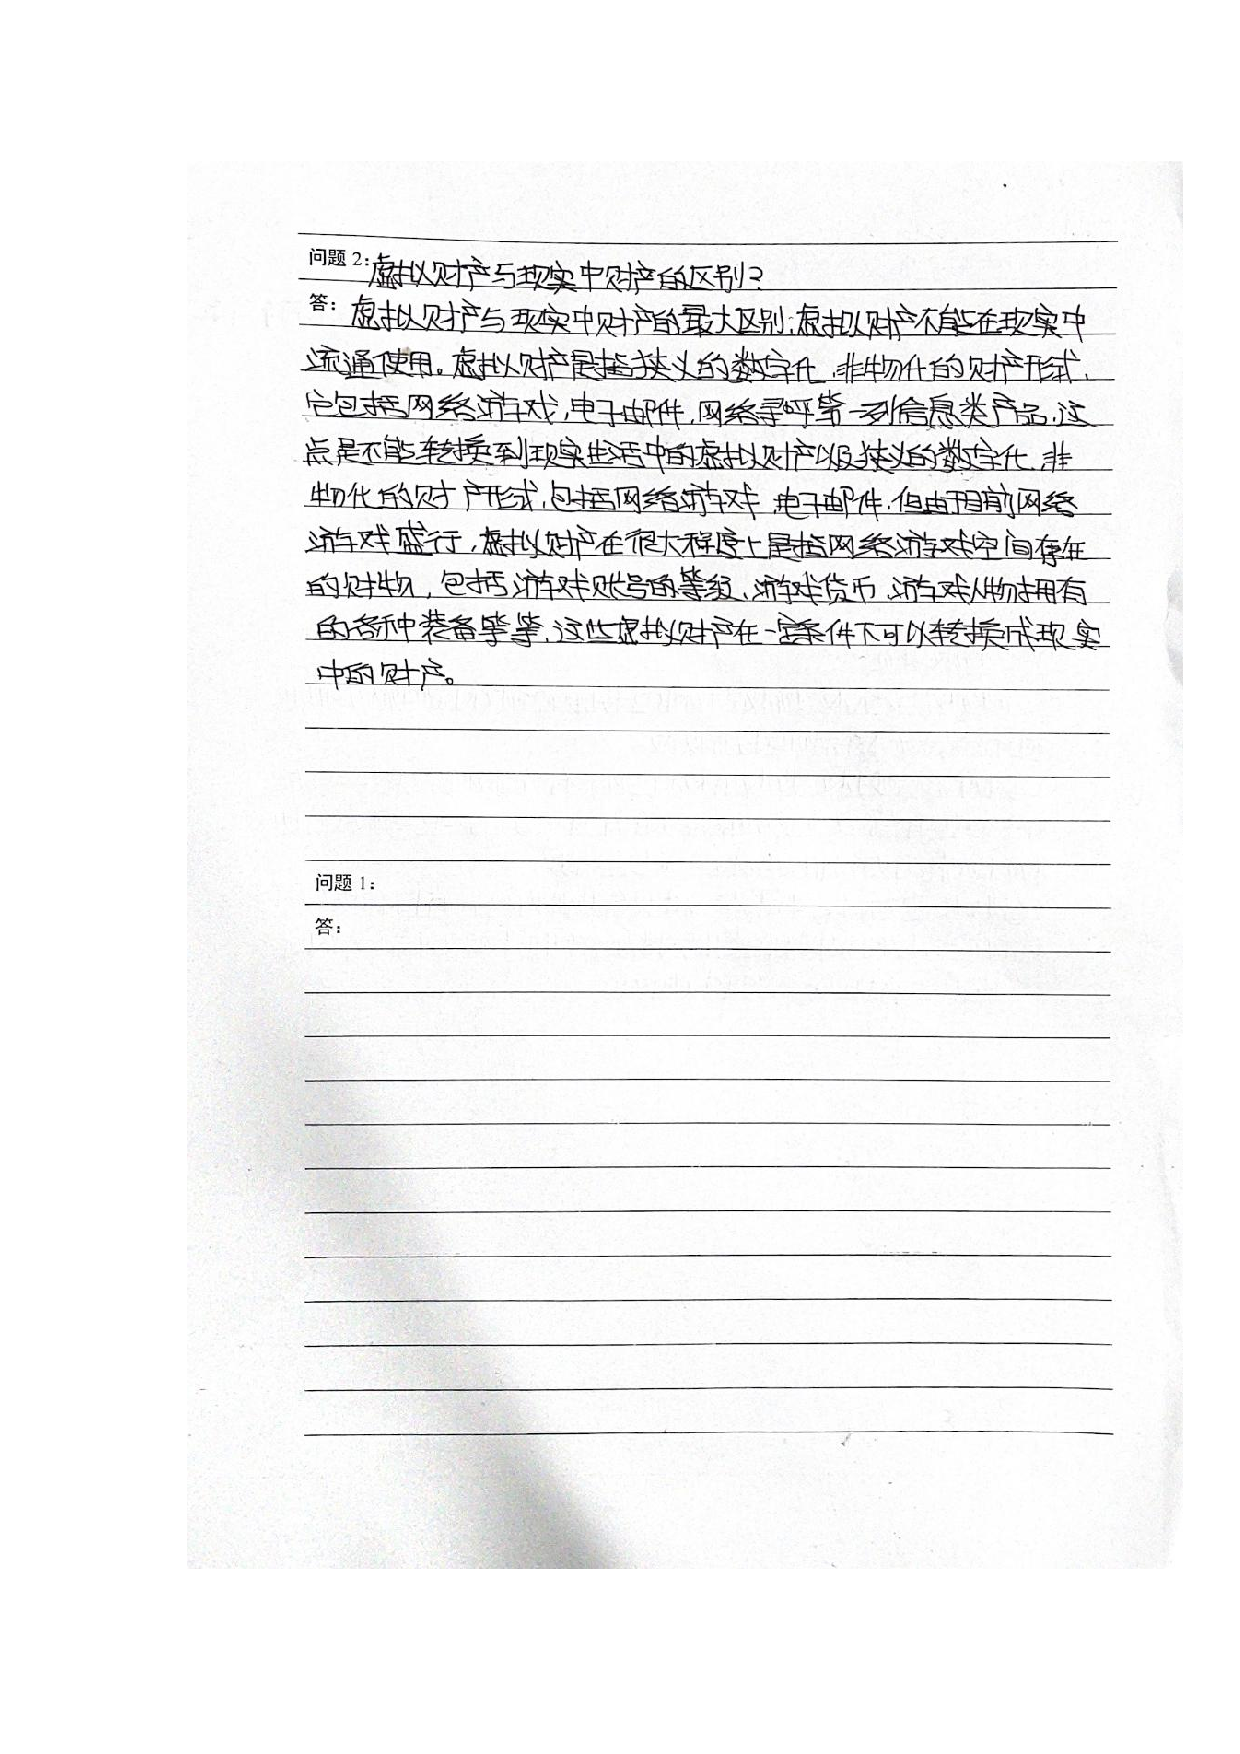 问题2:虚拟财产与现实中财产的区别?
答:虚拟财产与现实中财产的最大区别:虚拟财产不能在现实中
流通使用。虚拟财产是指狭义的数字化,非物化的财产形式,
它包括网络游戏,电子邮件,网络寻呼等一列信息类产品,这
点是不能转换到现实生活中的虚拟财产以及狭义的数字化,非
物化的财产形式,包括网络游戏,电子邮件,但由于目前网络
游戏盛行,虚拟财产在很大程度上是指网络游戏空间存在
的财物,包括游戏账号的等级、游戏货币、游戏人物拥有
的各种装备等等,这些虚拟财产在一定条件下可以转换成现实
中的财产。
问题1:
答: